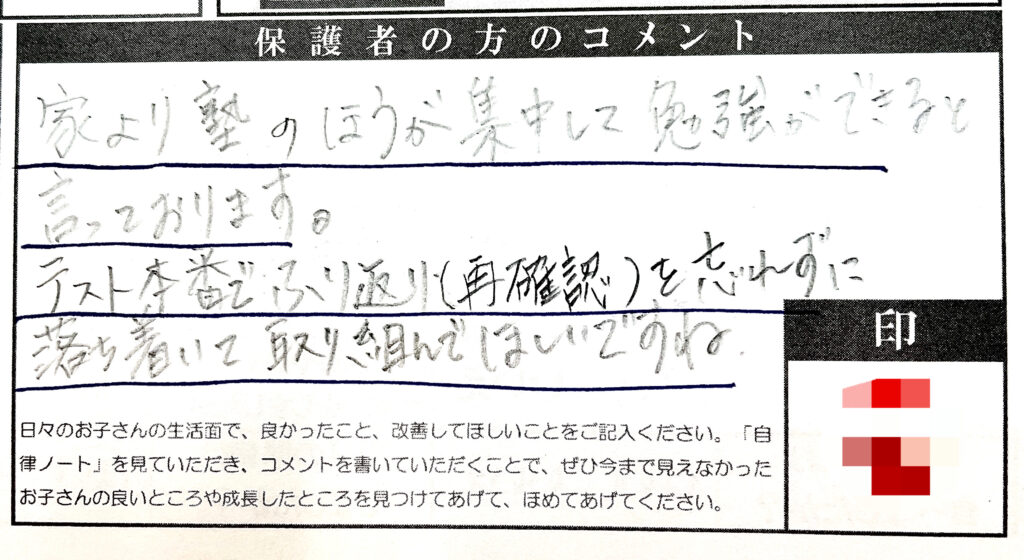 保護者の方のコメント
家より塾のほうが集中して勉強ができると
言っております。
テスト本番でふり返り(再確認)を忘れずに
落ち着いて取り組んでほしいですね.
印
日々のお子さんの生活面で、良かったこと、改善してほしいことをご記入ください。「自
律ノート」を見ていただき、コメントを書いていただくことで、ぜひ今まで見えなかった
お子さんの良いところや成長したところを見つけてあげて、ほめてあげてください。